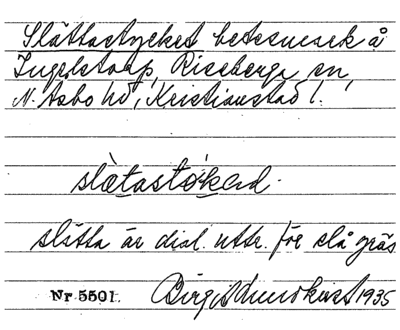 Slättastycket betesmark å
Ingelstorp, Riseberga sn,
N. Åsbo hd, Kristianstad l.
slætastøkəd.
slätta är dial. uttr. för slå gräs
Nr 5501. Birgit Lundkvist 1935